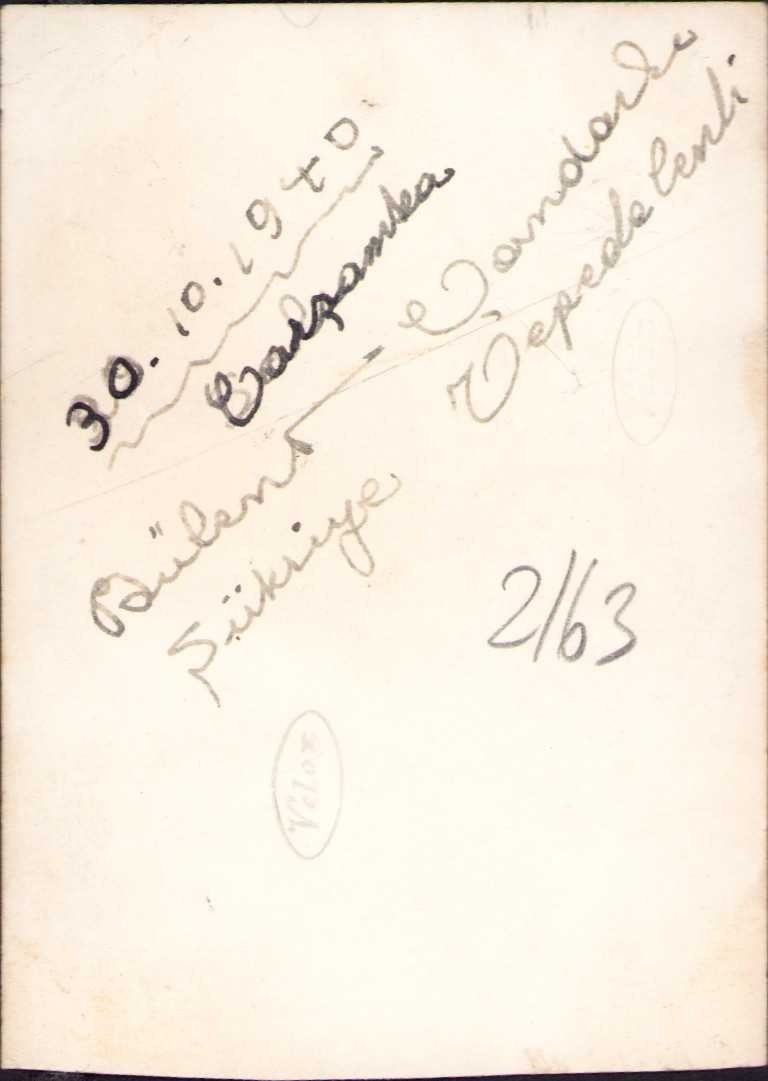 30.10.1940
Çarşamba
Bülent - Çandarlı
Şükriye Tepedelenli
2/63
Velox